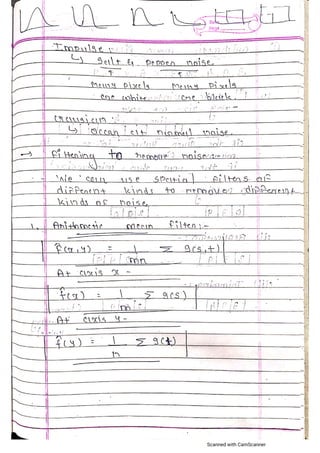 Impulse
↳ salt & pepper noise.
↑ ↑
means pixels means pixels
are white are black.
Gaussian :
↳ Occan cit nominal noise.
→ filtening to remove noise
We can use spatial filters of
different kinds to remove different
kinds of noise.
1. Anithmetic mean filter:-
f̂(x,y) = 1/mn Σ g(s,t)
At axis x -
f̂(x) = 1/m Σ g(s)
At axis y -
f̂(y) = 1/n Σ g(t)
Scanned with CamScanner